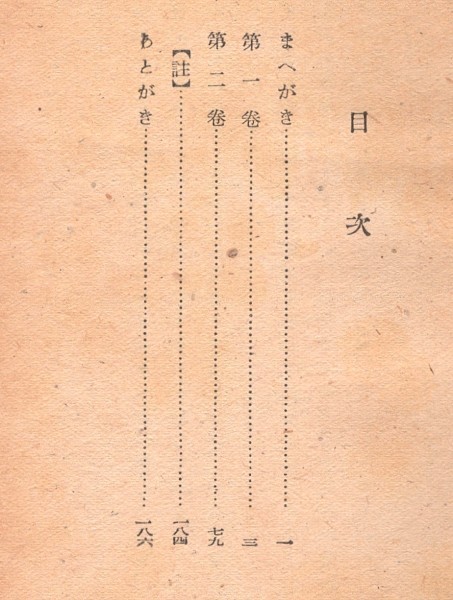 目次
まへがき……一
第一卷……三
第二卷……七九
【註】……一八四
あとがき……一八六